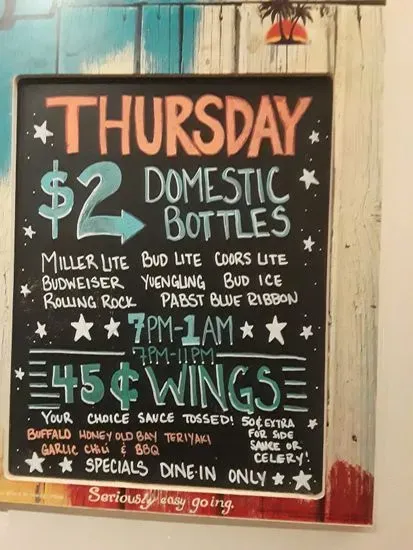 THURSDAY
$2 DOMESTIC
BOTTLES
MILLER LITE BUD LITE COORS LITE
BUDWEISER YUENGLING BUD ICE
ROLLING ROCK PABST BLUE RIBBON
7PM-1AM
7PM-11PM
45¢ WINGS
YOUR CHOICE SAUCE TOSSED!
BUFFALO HONEY OLD BAY TERIYAKI
GARLIC CHILI & BBQ
50¢ EXTRA
FOR SIDE
SAUCE OR
CELERY!
SPECIALS DINE-IN ONLY
Seriously easy going.